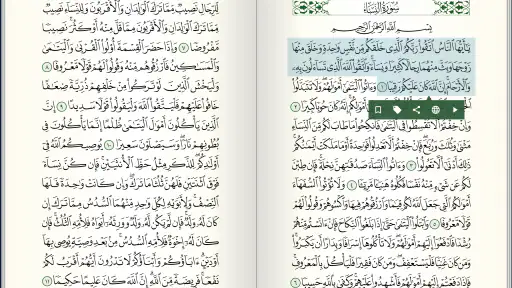 سُورَةُ النِّسَاءِ
بِسْمِ اللَّهِ الرَّحْمَٰنِ الرَّحِيمِ
يَا أَيُّهَا النَّاسُ اتَّقُوا رَبَّكُمُ الَّذِي خَلَقَكُم مِّن نَّفْسٍ وَاحِدَةٍ وَخَلَقَ مِنْهَا
زَوْجَهَا وَبَثَّ مِنْهُمَا رِجَالًا كَثِيرًا وَنِسَاءً وَاتَّقُوا اللَّهَ الَّذِي تَسَاءَلُونَ بِهِ
وَالْأَرْحَامَ إِنَّ اللَّهَ كَانَ عَلَيْكُمْ رَقِيبًا ١ وَآتُوا الْيَتَامَىٰ أَمْوَالَهُمْ وَلَا تَتَبَدَّلُوا
إِنَّهُ كَانَ حُوبًا كَبِيرًا ٢
وَإِنْ خِفْتُمْ أَلَّا تُقْسِطُوا فِي الْيَتَامَىٰ فَانكِحُوا مَا طَابَ لَكُم مِّنَ النِّسَاءِ
مَثْنَىٰ وَثُلَاثَ وَرُبَاعَ فَإِنْ خِفْتُمْ أَلَّا تَعْدِلُوا فَوَاحِدَةً أَوْ مَا مَلَكَتْ أَيْمَانُكُمْ
ذَٰلِكَ أَدْنَىٰ أَلَّا تَعُولُوا ٣ وَآتُوا النِّسَاءَ صَدُقَاتِهِنَّ نِحْلَةً فَإِن طِبْنَ
لَكُمْ عَن شَيْءٍ مِّنْهُ نَفْسًا فَكُلُوهُ هَنِيئًا مَّرِيئًا ٤ وَلَا تُؤْتُوا السُّفَهَاءَ
أَمْوَالَكُمُ الَّتِي جَعَلَ اللَّهُ لَكُمْ قِيَامًا وَارْزُقُوهُمْ فِيهَا وَاكْسُوهُمْ وَقُولُوا لَهُمْ
قَوْلًا مَّعْرُوفًا ٥ وَابْتَلُوا الْيَتَامَىٰ حَتَّىٰ إِذَا بَلَغُوا النِّكَاحَ فَإِنْ آنَسْتُم مِّنْهُمْ
رُشْدًا فَادْفَعُوا إِلَيْهِمْ أَمْوَالَهُمْ وَلَا تَأْكُلُوهَا إِسْرَافًا وَبِدَارًا أَن يَكْبَرُوا
وَمَن كَانَ غَنِيًّا فَلْيَسْتَعْفِفْ وَمَن كَانَ فَقِيرًا فَلْيَأْكُلْ بِالْمَعْرُوفِ
فَإِذَا دَفَعْتُمْ إِلَيْهِمْ أَمْوَالَهُمْ فَأَشْهِدُوا عَلَيْهِمْ وَكَفَىٰ بِاللَّهِ حَسِيبًا ٦
لِّلرِّجَالِ نَصِيبٌ مِّمَّا تَرَكَ الْوَالِدَانِ وَالْأَقْرَبُونَ وَلِلنِّسَاءِ نَصِيبٌ
مِّمَّا تَرَكَ الْوَالِدَانِ وَالْأَقْرَبُونَ مِمَّا قَلَّ مِنْهُ أَوْ كَثُرَ نَصِيبًا
مَّفْرُوضًا ٧ وَإِذَا حَضَرَ الْقِسْمَةَ أُولُو الْقُرْبَىٰ وَالْيَتَامَىٰ
وَالْمَسَاكِينُ فَارْزُقُوهُم مِّنْهُ وَقُولُوا لَهُمْ قَوْلًا مَّعْرُوفًا ٨
وَلْيَخْشَ الَّذِينَ لَوْ تَرَكُوا مِنْ خَلْفِهِمْ ذُرِّيَّةً ضِعَافًا
خَافُوا عَلَيْهِمْ فَلْيَتَّقُوا اللَّهَ وَلْيَقُولُوا قَوْلًا سَدِيدًا ٩ إِنَّ
الَّذِينَ يَأْكُلُونَ أَمْوَالَ الْيَتَامَىٰ ظُلْمًا إِنَّمَا يَأْكُلُونَ فِي
بُطُونِهِمْ نَارًا وَسَيَصْلَوْنَ سَعِيرًا ١٠ يُوصِيكُمُ اللَّهُ فِي
أَوْلَادِكُمْ لِلذَّكَرِ مِثْلُ حَظِّ الْأُنثَيَيْنِ فَإِن كُنَّ نِسَاءً
فَوْقَ اثْنَتَيْنِ فَلَهُنَّ ثُلُثَا مَا تَرَكَ وَإِن كَانَتْ وَاحِدَةً فَلَهَا
النِّصْفُ وَلِأَبَوَيْهِ لِكُلِّ وَاحِدٍ مِّنْهُمَا السُّدُسُ مِمَّا تَرَكَ إِن
كَانَ لَهُ وَلَدٌ فَإِن لَّمْ يَكُن لَّهُ وَلَدٌ وَوَرِثَهُ أَبَوَاهُ فَلِأُمِّهِ الثُّلُثُ فَإِن
كَانَ لَهُ إِخْوَةٌ فَلِأُمِّهِ السُّدُسُ مِن بَعْدِ وَصِيَّةٍ يُوصِي بِهَا
أَوْ دَيْنٍ آبَاؤُكُمْ وَأَبْنَاؤُكُمْ لَا تَدْرُونَ أَيُّهُمْ أَقْرَبُ لَكُمْ
نَفْعًا فَرِيضَةً مِّنَ اللَّهِ إِنَّ اللَّهَ كَانَ عَلِيمًا حَكِيمًا ١١